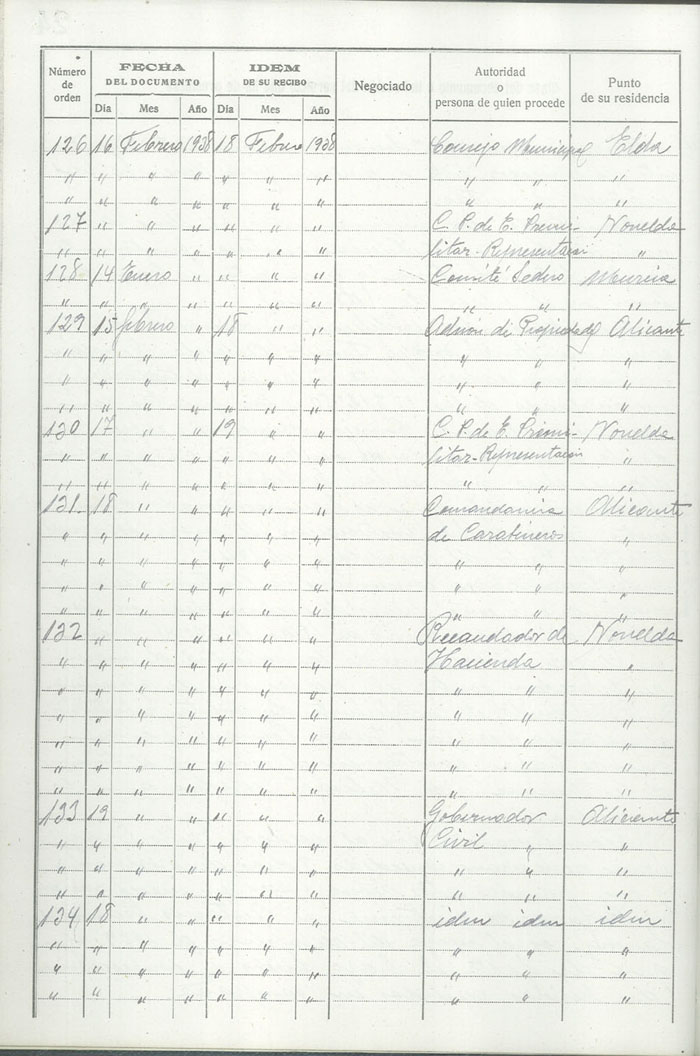 Número de orden | FECHA DEL DOCUMENTO | IDEM DE SU RECIBO | Negociado | Autoridad o persona de quien procede | Punto de su residencia
Dia | Mes | Año | Dia | Mes | Año
126 16 Febrero 1938 18 Febrero 1938 Consejo Municipal Elda
" " " " " " " " " "
" " " " " " " " " "
127 " " " " " " C. P. de E. Premi- Novelda
" " " " " " " litar-Representacion "
128 14 Enero " " " " Comité Sedero Murcia
" " " " " " " " " "
129 15 febrero " 18 " " Admon de Propiedades Alicante
" " " " " " " " " "
" " " " " " " " " "
" " " " " " " " " "
130 17 " " 19 " " C. P. de E. Premi- Novelda
" " " " " " " litar-Representacion "
" " " " " " " " " "
131 18 " " " " " Comandancia Alicante
" " " " " " " de Carabineros "
" " " " " " " " " "
" " " " " " " " " "
" " " " " " " " " "
132 " " " " " " Recaudador de Novelda
" " " " " " " Hacienda "
" " " " " " " " " "
" " " " " " " " " "
" " " " " " " " " "
" " " " " " " " " "
" " " " " " " " " "
133 19 " " " " " Gobernador Alicante
" " " " " " " Civil " "
" " " " " " " " " "
" " " " " " " " " "
134 18 " " " " " idm idm idm
" " " " " " " " " "
" " " " " " " " " "
" " " " " " " " " "